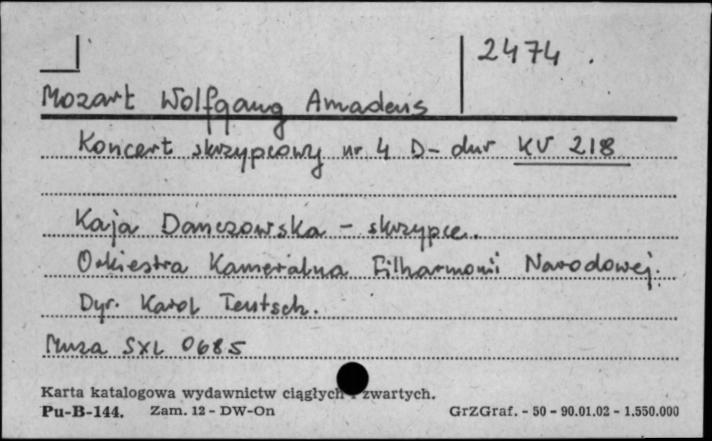 2474.
Mozart Wolfgang Amadeus
Koncert skrzypcowy nr 4 D-dur KV 218
Kaja Danczowska - skrzypce.
Orkiestra Kameralna Filharmonii Narodowej.
Dyr. Karol Teutsch.
Muza SXL 0685
Karta katalogowa wydawnictw ciągłych zwartych.
Pu-B-144. Zam. 12 - DW-On GrZGraf. - 50 - 90.01.02 - 1.550.000